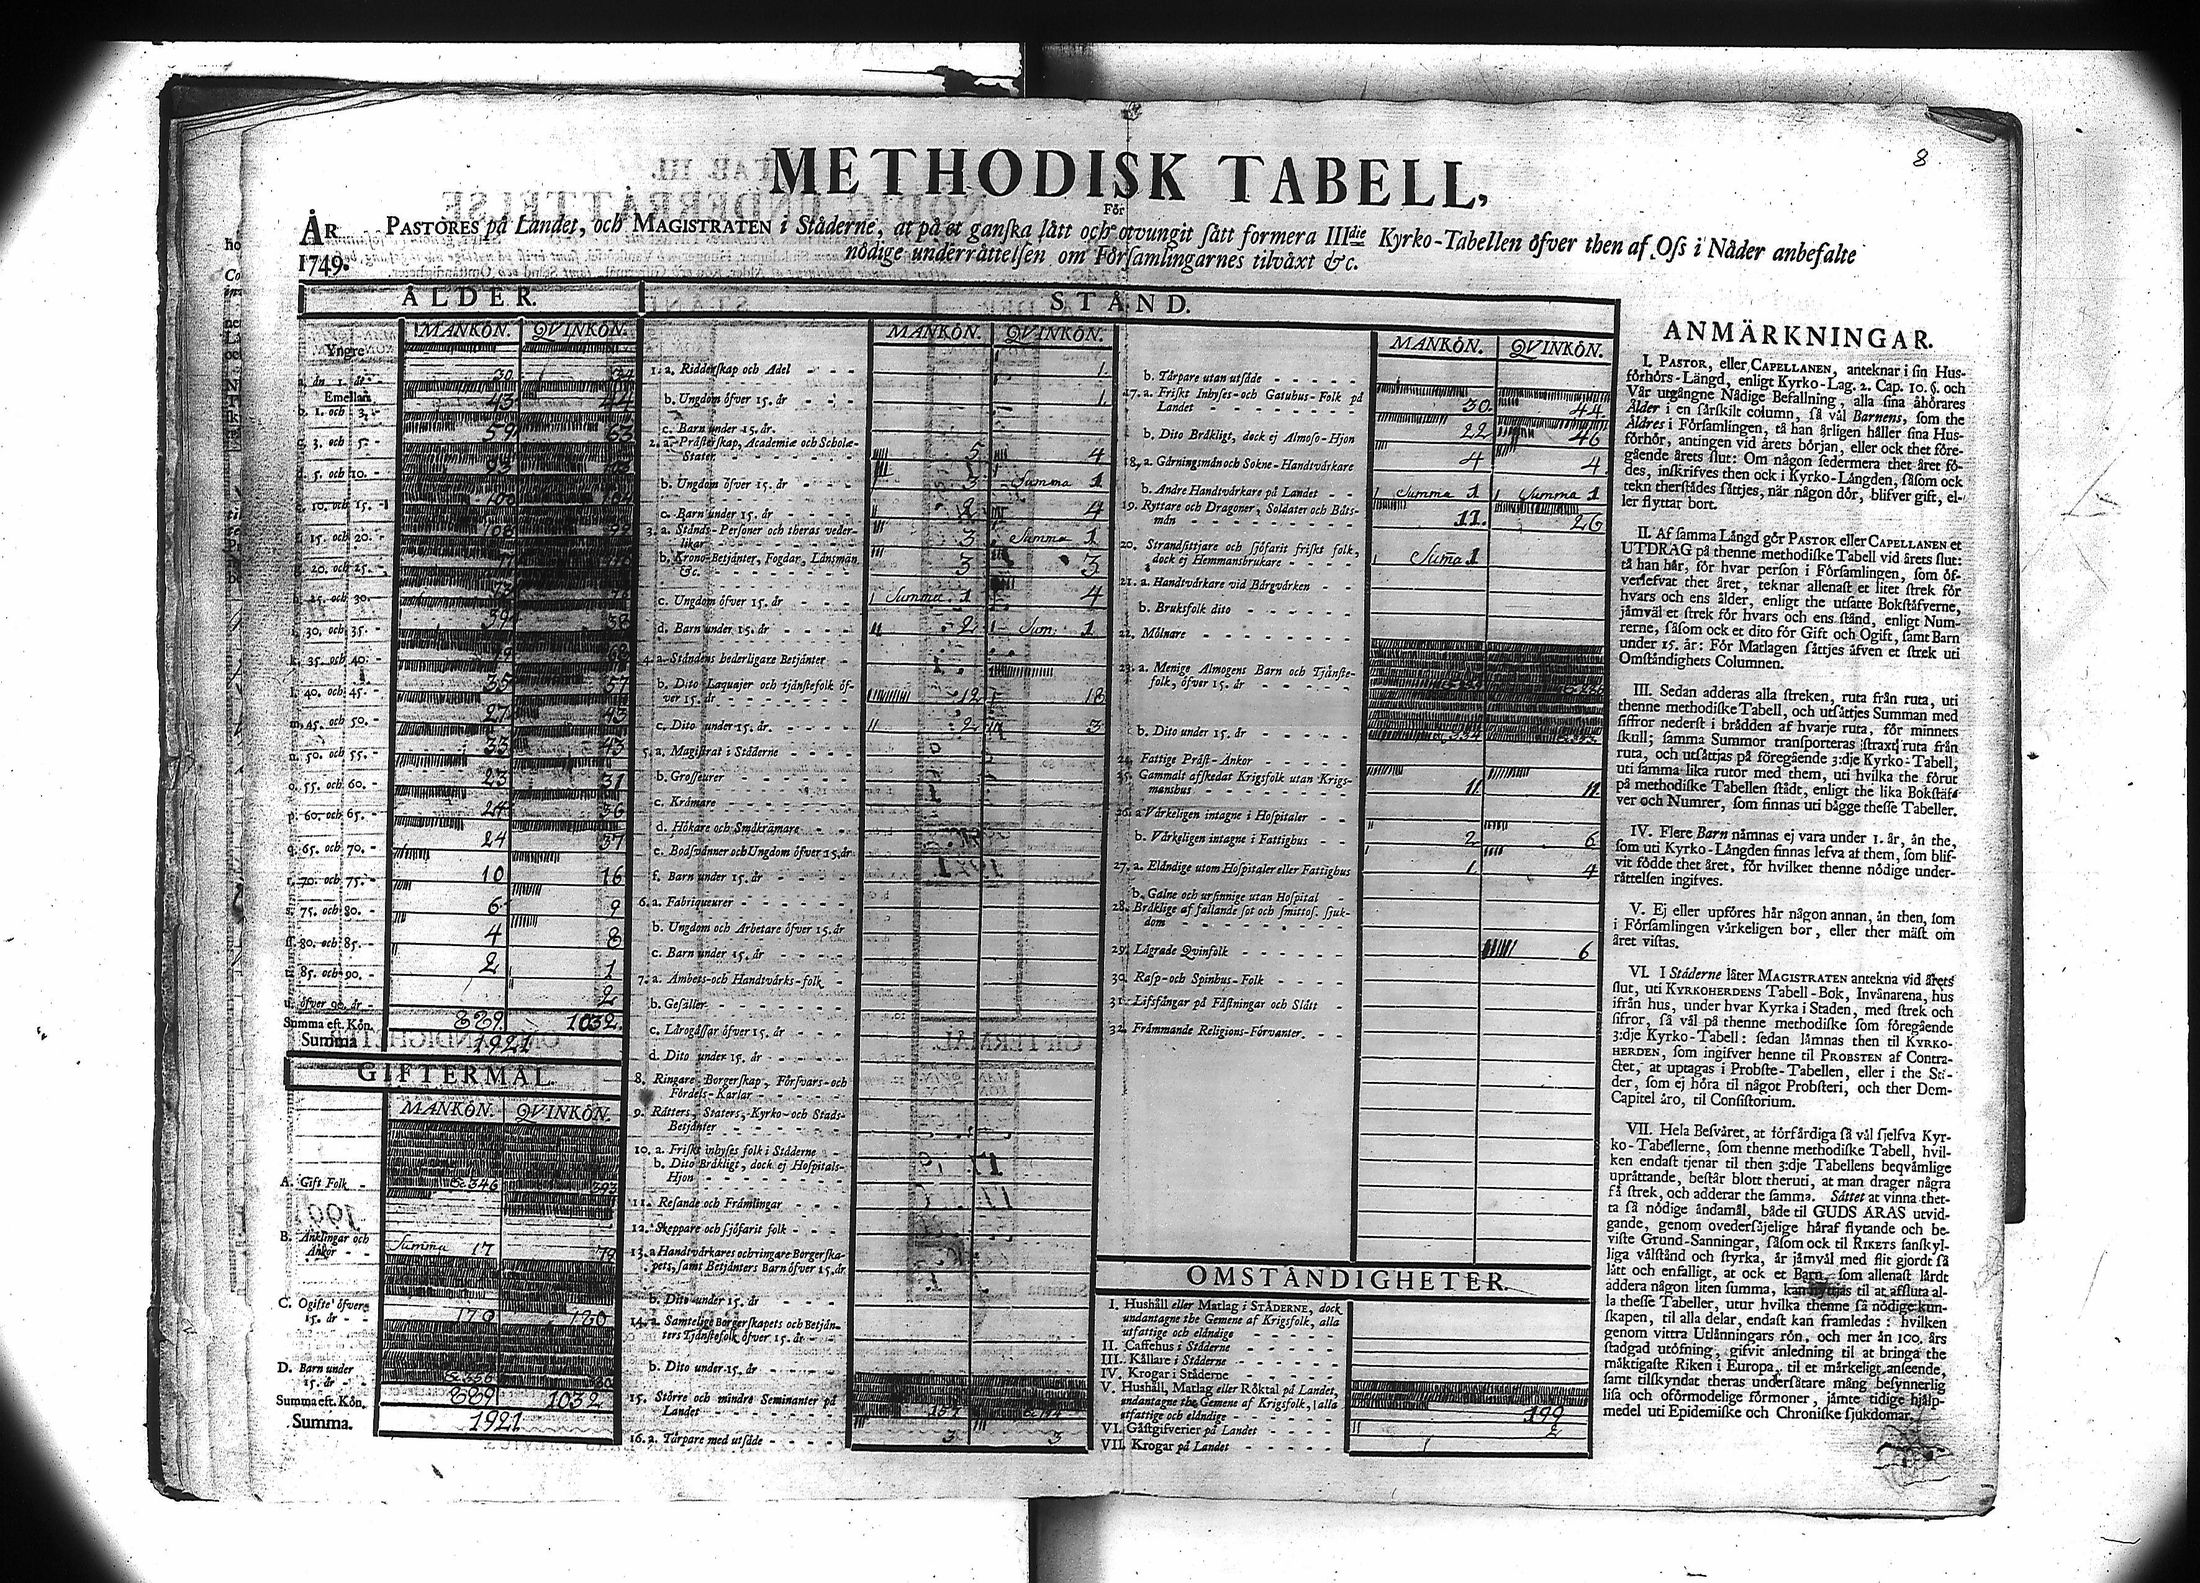 8
METHODISK TABELL,
För
ÅR 1749.
PASTORES på Landet, och MAGISTRATEN i Städerne, at på et ganska lätt och otvungit sätt formera IIIdie Kyrko-Tabellen öfver then af Oss i Nåder anbefalte
nödige underrättelsen om Församlingarnes tilväxt &c.
ÅLDER.
MANKÖN. QVINKÖN.
Yngre
a. än 1. år 30 34
Emellan
b. 1. och 3. 43 44
c. 3. och 5. 59 63
d. 5. och 10. 93
e. 10. och 15. 100 104
f. 15. och 20. 108 99
g. 20. och 25.
h. 25. och 30. 73
i. 30. och 35. 58
k. 35. och 40. 68
l. 40. och 45. 35 57
m. 45. och 50. 27 43
n. 50. och 55. 33 43
o. 55. och 60. 23 31
p. 60. och 65. 24 36
q. 65. och 70. 24 37
r. 70. och 75. 10 16
s. 75. och 80. 6 9
ſſ. 80. och 85. 4 8
t. 85. och 90. 2 1
u. öfver 90. år 2
Summa eft. Kön. 889 1032.
Summa 1921
GIFTERMÅL.
MANKÖN. QVINKÖN.
A. Gift Folk 346 393
B. Änklingar och
Änkor Summa 17 79
C. Ogifte öfver
15. år 170 180
D. Barn under
15. år
Summa eft. Kön. 889 1032
Summa. 1921
STÅND.
MANKÖN. QVINKÖN.
1. a. Ridderskap och Adel 1.
b. Ungdom öfver 15. år 1.
c. Barn under 15. år.
2. a. Prästerskap, Academiæ och Scholæ-
Stater 5 4
b. Ungdom öfver 15. år 3 Summa 1
c. Barn under 15. år 2 4
3. a. Stånds-Personer och theras veder-
likar 3 Summa 1
b. Krono-Betjänter, Fogdar, Länsmän
&c. 3 3
c. Ungdom öfver 15. år Summa 1 4
d. Barn under 15. år 2 Sum: 1
4. a. Ståndens hederligare Betjänter
b. Dito Laquajer och tjänstefolk öf-
ver 15. år 12 18
c. Dito under 15. år 2 3
5. a. Magistrat i Städerne
b. Grosseurer
c. Krämare
d. Hökare och Småkrämare
e. Bodsvänner och Ungdom öfver 15. år
f. Barn under 15. år
6. a. Fabriqueurer
b. Ungdom och Arbetare öfver 15. år
c. Barn under 15. år
7. a. Ambets- och Handtvärks-folk
b. Gesäller
c. Lärogåssar öfver 15. år
d. Dito under 15. år
8. Ringare Borgerskap, Försvars- och
Fördels-Karlar
9. Rätters, Staters, Kyrko- och Stads-
Betjänter
10. a. Friskt inhyses folk i Städerne
b. Dito Bräkligt, dock ej Hospitals-
Hjon
11. Resande och Främlingar
12. Skeppare och sjöfarit folk
13. a Handtvärkares och ringare Borgerska-
pets, samt Betjänters Barn öfver 15. år
b. Dito under 15. år
14. a. Samtelige Borgerskapets och Betjän-
ters Tjänstefolk öfver 15. år
b. Dito under 15. år
15. Större och mindre Seminanter på
Landet
16. a. Tärpare med utsäde 3 3
MANKÖN. QVINKÖN.
b. Tärpare utan utsäde
17. a. Friskt Inhyses- och Gatuhus-Folk på
Landet 30. 44.
b. Dito Bräkligt, dock ej Almoso-Hjon 22 46
18. a. Gärningsmän och Sokne-Handtvärkare 4 4
b. Andre Handtvärkare på Landet Summa 1 Summa 1
19. Ryttare och Dragoner, Soldater och Båts-
män 11. 26
20. Strandsittjare och sjöfarit friskt folk,
dock ej Hemmansbrukare Suma 1
21. a. Handtvärkare vid Bärgvärken
b. Bruksfolk dito
22. Mölnare
23. a. Menige Almogens Barn och Tjänste-
folk, öfver 15. år
b. Dito under 15. år 334
24. Fattige Präst-Änkor
25. Gammalt afskedat Krigsfolk utan Krigs-
manshus 11. 11.
26. a Värkeligen intagne i Hospitaler
b. Värkeligen intagne i Fattighus 2 6
27. a. Eländige utom Hospitaler eller Fattighus 1. 4
b. Galne och ursinnige utan Hospital
28. Bräklige af fallande sot och smittos. sjuk-
dom
29. Lägrade Qvinfolk 6
30. Rasp- och Spinhus-Folk
31. Lifsfångar på Fästningar och Slått
32. Främmande Religions-Förvanter.
OMSTÄNDIGHETER.
I. Hushåll eller Matlag i STÄDERNE, dock
undantagne the Gemene af Krigsfolk, alla
utfattige och eländige
II. Caffehus i Städerne
III. Källare i Städerne
IV. Krogar i Städerne
V. Hushåll, Matlag eller Röktal på Landet,
undantagne the Gemene af Krigsfolk, alla
utfattige och eländige 199
VI. Gästgifverier på Landet 2
VII. Krogar på Landet
ANMÄRKNINGAR.
I. PASTOR, eller CAPELLANEN, anteknar i sin Hus-
förhörs-Längd, enligt Kyrko-Lag. 2. Cap. 10. §. och
Vår utgångne Nådige Befallning, alla sina åhörares
Ålder i en särskilt column, så väl Barnens, som the
Äldres i Församlingen, tå han årligen håller sina Hus-
förhör, antingen vid årets början, eller ock thet före-
gående årets slut: Om någon sedermera thet året fö-
des, inskrifves then ock i Kyrko-Längden, såsom ock
tekn therstädes sättjes, när någon dör, blifver gift, el-
ler flyttar bort.
II. Af samma Längd gör PASTOR eller CAPELLANEN et
UTDRAG på thenne methodiske Tabell vid årets slut:
tå han här, för hvar person i Församlingen, som öf-
verlefvat thet året, teknar allenast et litet strek för
hvars och ens ålder, enligt the utsatte Bokstäfverne,
jämväl et strek för hvars och ens stånd, enligt Num-
rerne, såsom ock et dito för Gift och Ogift, samt Barn
under 15. år: För Matlagen sättjes äfven et strek uti
Omständighets Columnen.
III. Sedan adderas alla streken, ruta från ruta, uti
thenne methodiske Tabell, och utsättjes Summan med
siffror nederst i brädden af hvarje ruta, för minnets
skull; samma Summor transporteras straxt ruta från
ruta, och utsättjas på föregående 3:dje Kyrko-Tabell,
uti samma lika rutor med them, uti hvilka the förut
på methodiske Tabellen stådt, enligt the lika Bokstäf-
ver och Numrer, som finnas uti bägge thesse Tabeller.
IV. Flere Barn nämnas ej vara under 1. år, än the,
som uti Kyrko-Längden finnas lefva af them, som blif-
vit födde thet året, för hvilket thenne nödige under-
rättelsen ingifves.
V. Ej eller upföres här någon annan, än then, som
i Församlingen värkeligen bor, eller ther mäst om
året vistas.
VI. I Städerne låter MAGISTRATEN antekna vid årets
slut, uti KYRKOHERDENS Tabell-Bok, Invånarena, hus
ifrån hus, under hvar Kyrka i Staden, med strek och
sifror, så väl på thenne methodiske som föregående
3:dje Kyrko-Tabell: sedan lämnas then til KYRKO-
HERDEN, som ingifver henne til PROBSTEN af Contra-
ctet, at uptagas i Probste-Tabellen, eller i the Stä-
der, som ej höra til något Probsteri, och ther Dom-
Capitel äro, til Consistorium.
VII. Hela Besväret, at förfärdiga så väl sjelfva Kyr-
ko-Tabellerne, som thenne methodiske Tabell, hvil-
ken endast tjenar til then 3:dje Tabellens beqvämlige
uprättande, består blott theruti, at man drager några
få strek, och adderar the samma. Sättet at vinna thet-
ta så nödige ändamål, både til GUDS ÄRAS utvid-
gande, genom ovedersäjelige häraf flytande och be-
viste Grund-Sanningar, såsom ock til RIKETS sanskyl-
liga välstånd och styrka, är jämväl med flit gjordt så
lätt och enfalligt, at ock et Barn, som allenast lärdt
addera någon liten summa, kan nyttjas til at affluta al-
la thesse Tabeller, utur hvilka thenne så nödige kun-
skapen, til alla delar, endast kan framledas: hvilken
genom vittra Utlänningars rön, och mer än 100. års
stadgad utöfning, gifvit anledning til at bringa the
mäktigaste Riken i Europa, til et märkeligt anseende,
samt tilskyndat theras undersåtare mång besynnerlig
lisa och oförmodelige förmoner, jämte tidige hjälp-
medel uti Epidemiske och Chroniske sjukdomar.